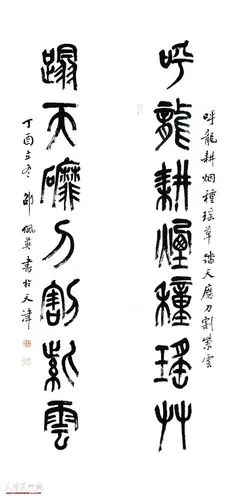 呼龍耕烟種瑶草 踏天磨刀割紫雲
呼龍耕煙種瑤艸
蹋天䃺刀割紫雲
丁酉立冬 邵佩英書於天津